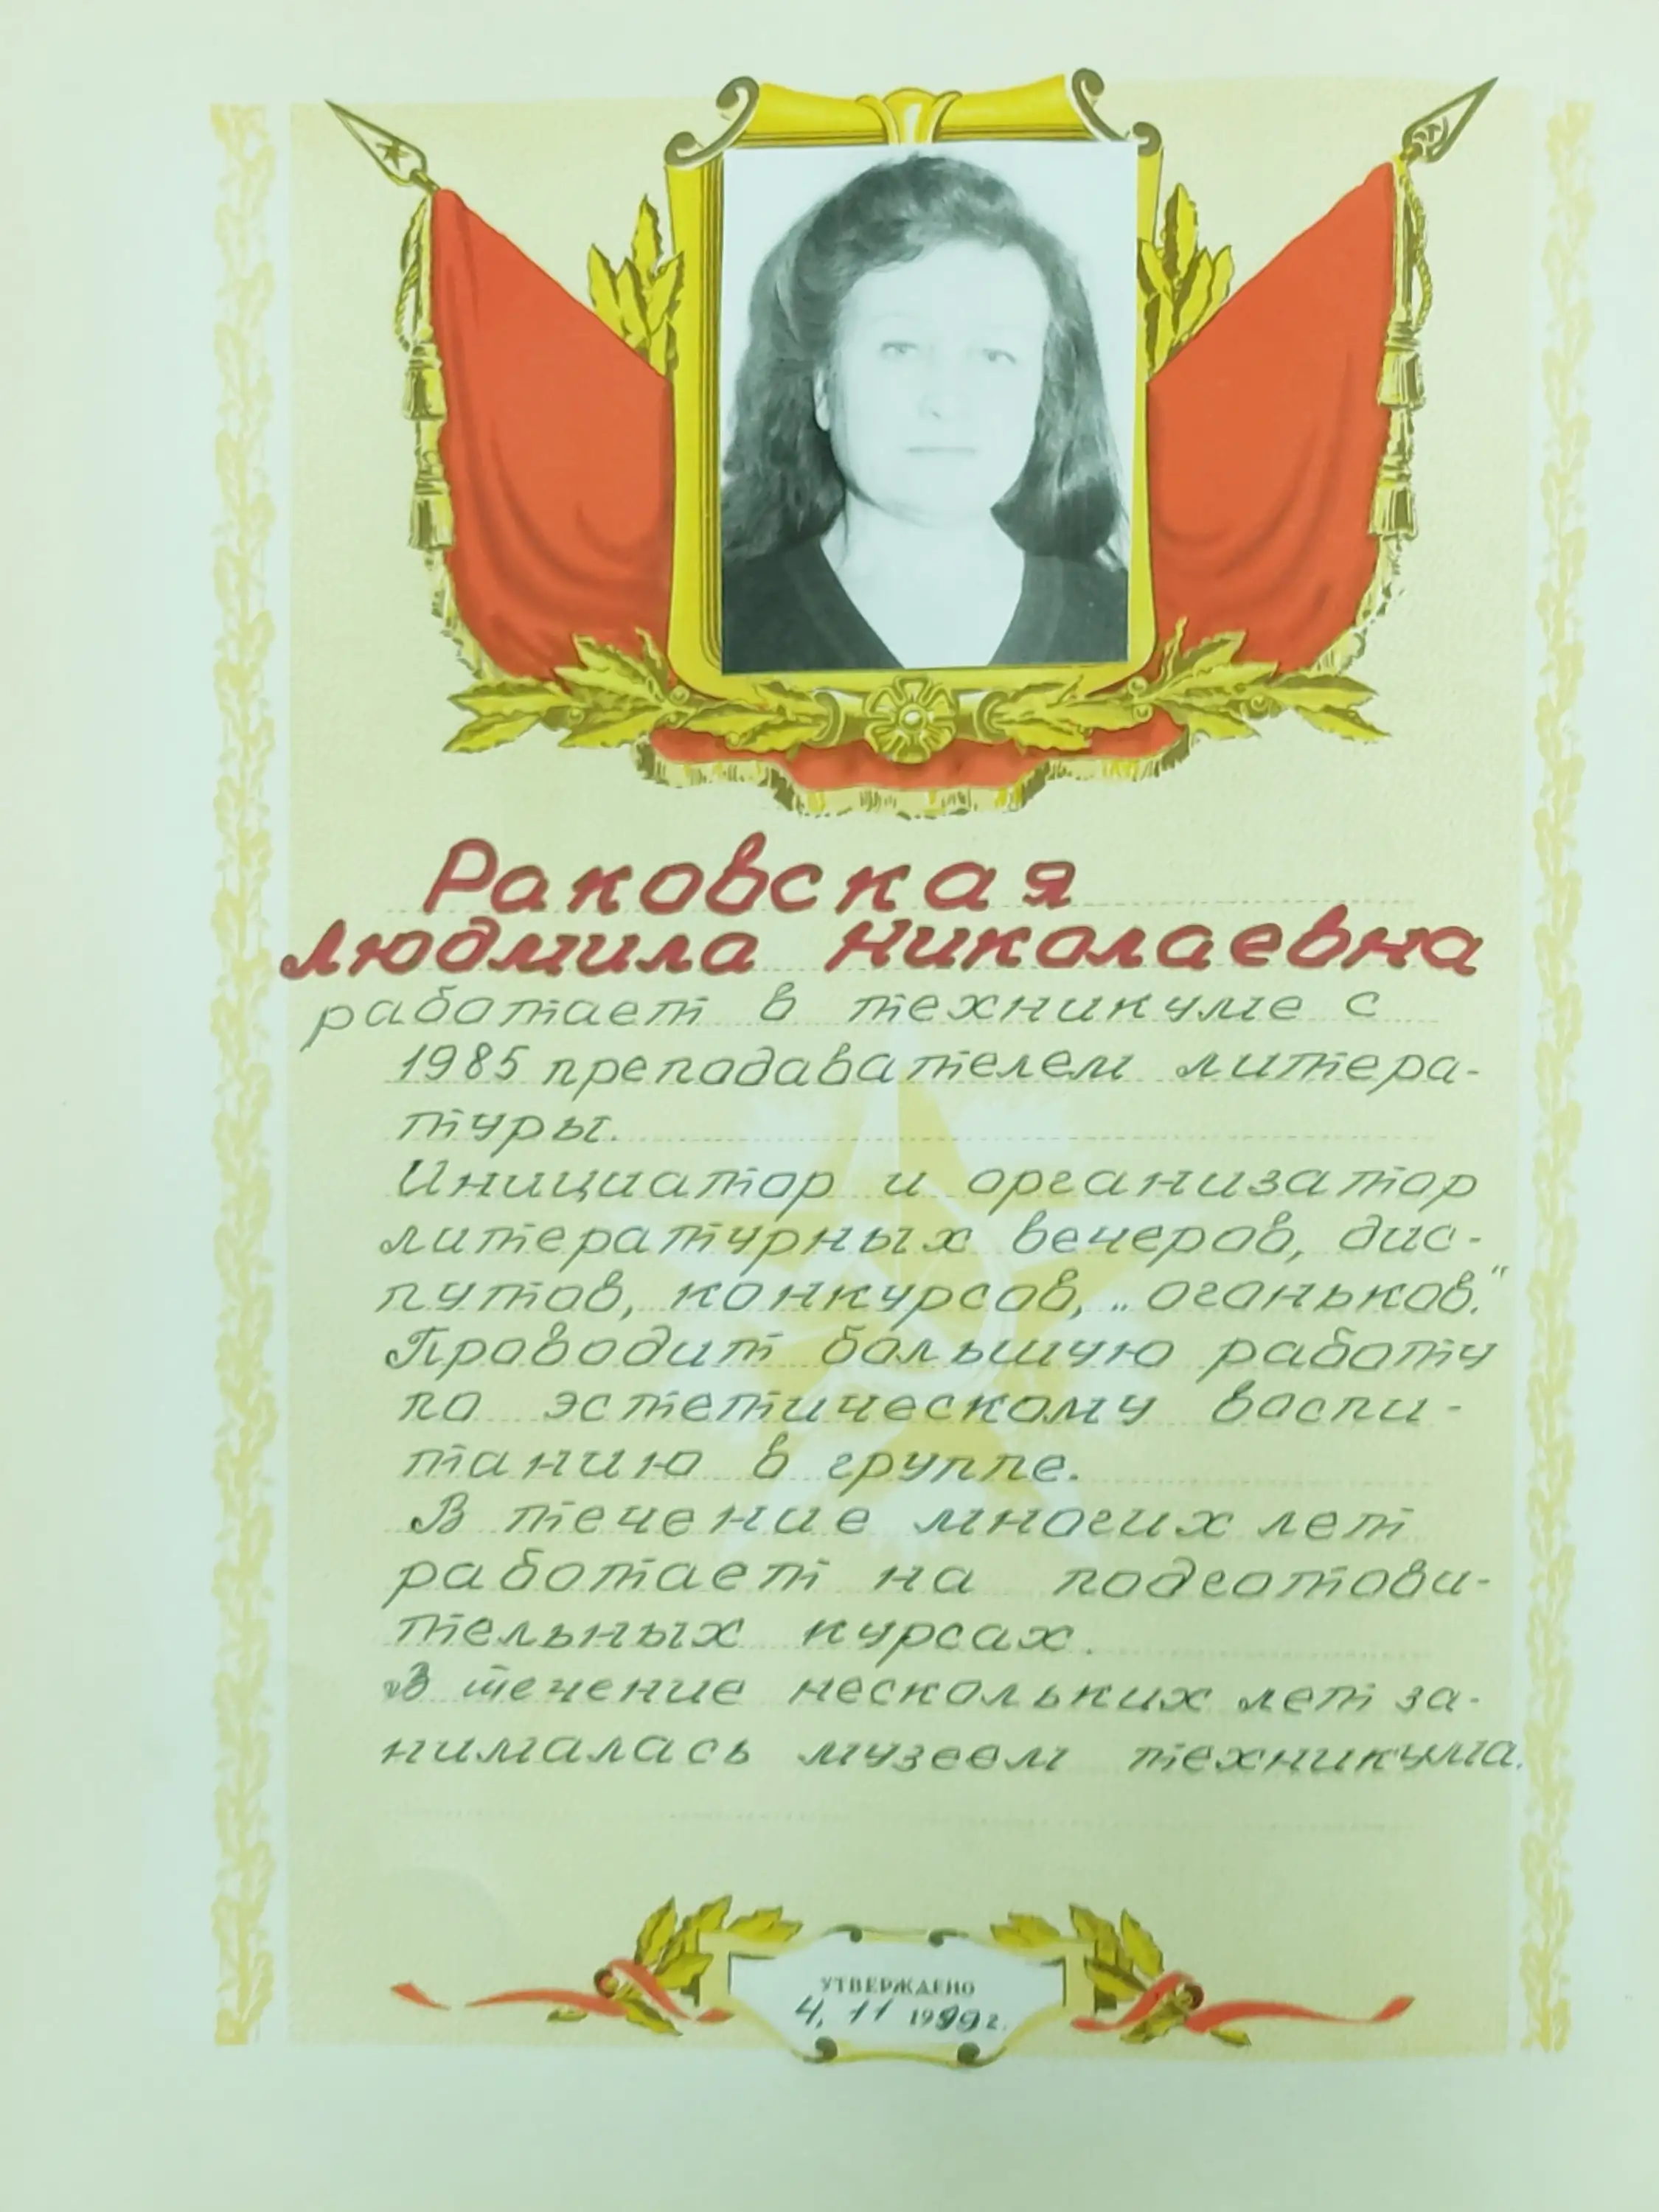 Раковская
Людмила Николаевна
работает в техникуме с
1985 преподавателем литера-
туры.
Инициатор и организатор
литературных вечеров, дис-
путов, конкурсов, „огоньков."
Проводит большую работу
по эстетическому воспи-
танию в группе.
В течение многих лет
работает на подготови-
тельных курсах.
В течение нескольких лет за-
нималась музеем техникума.
УТВЕРЖДЕНО
4. 11 1999 г.